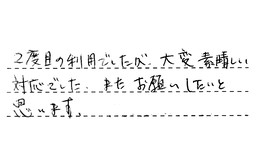 2度目の利用でしたが、大変素晴しい
対応でした、またお願いしたいと
思います。